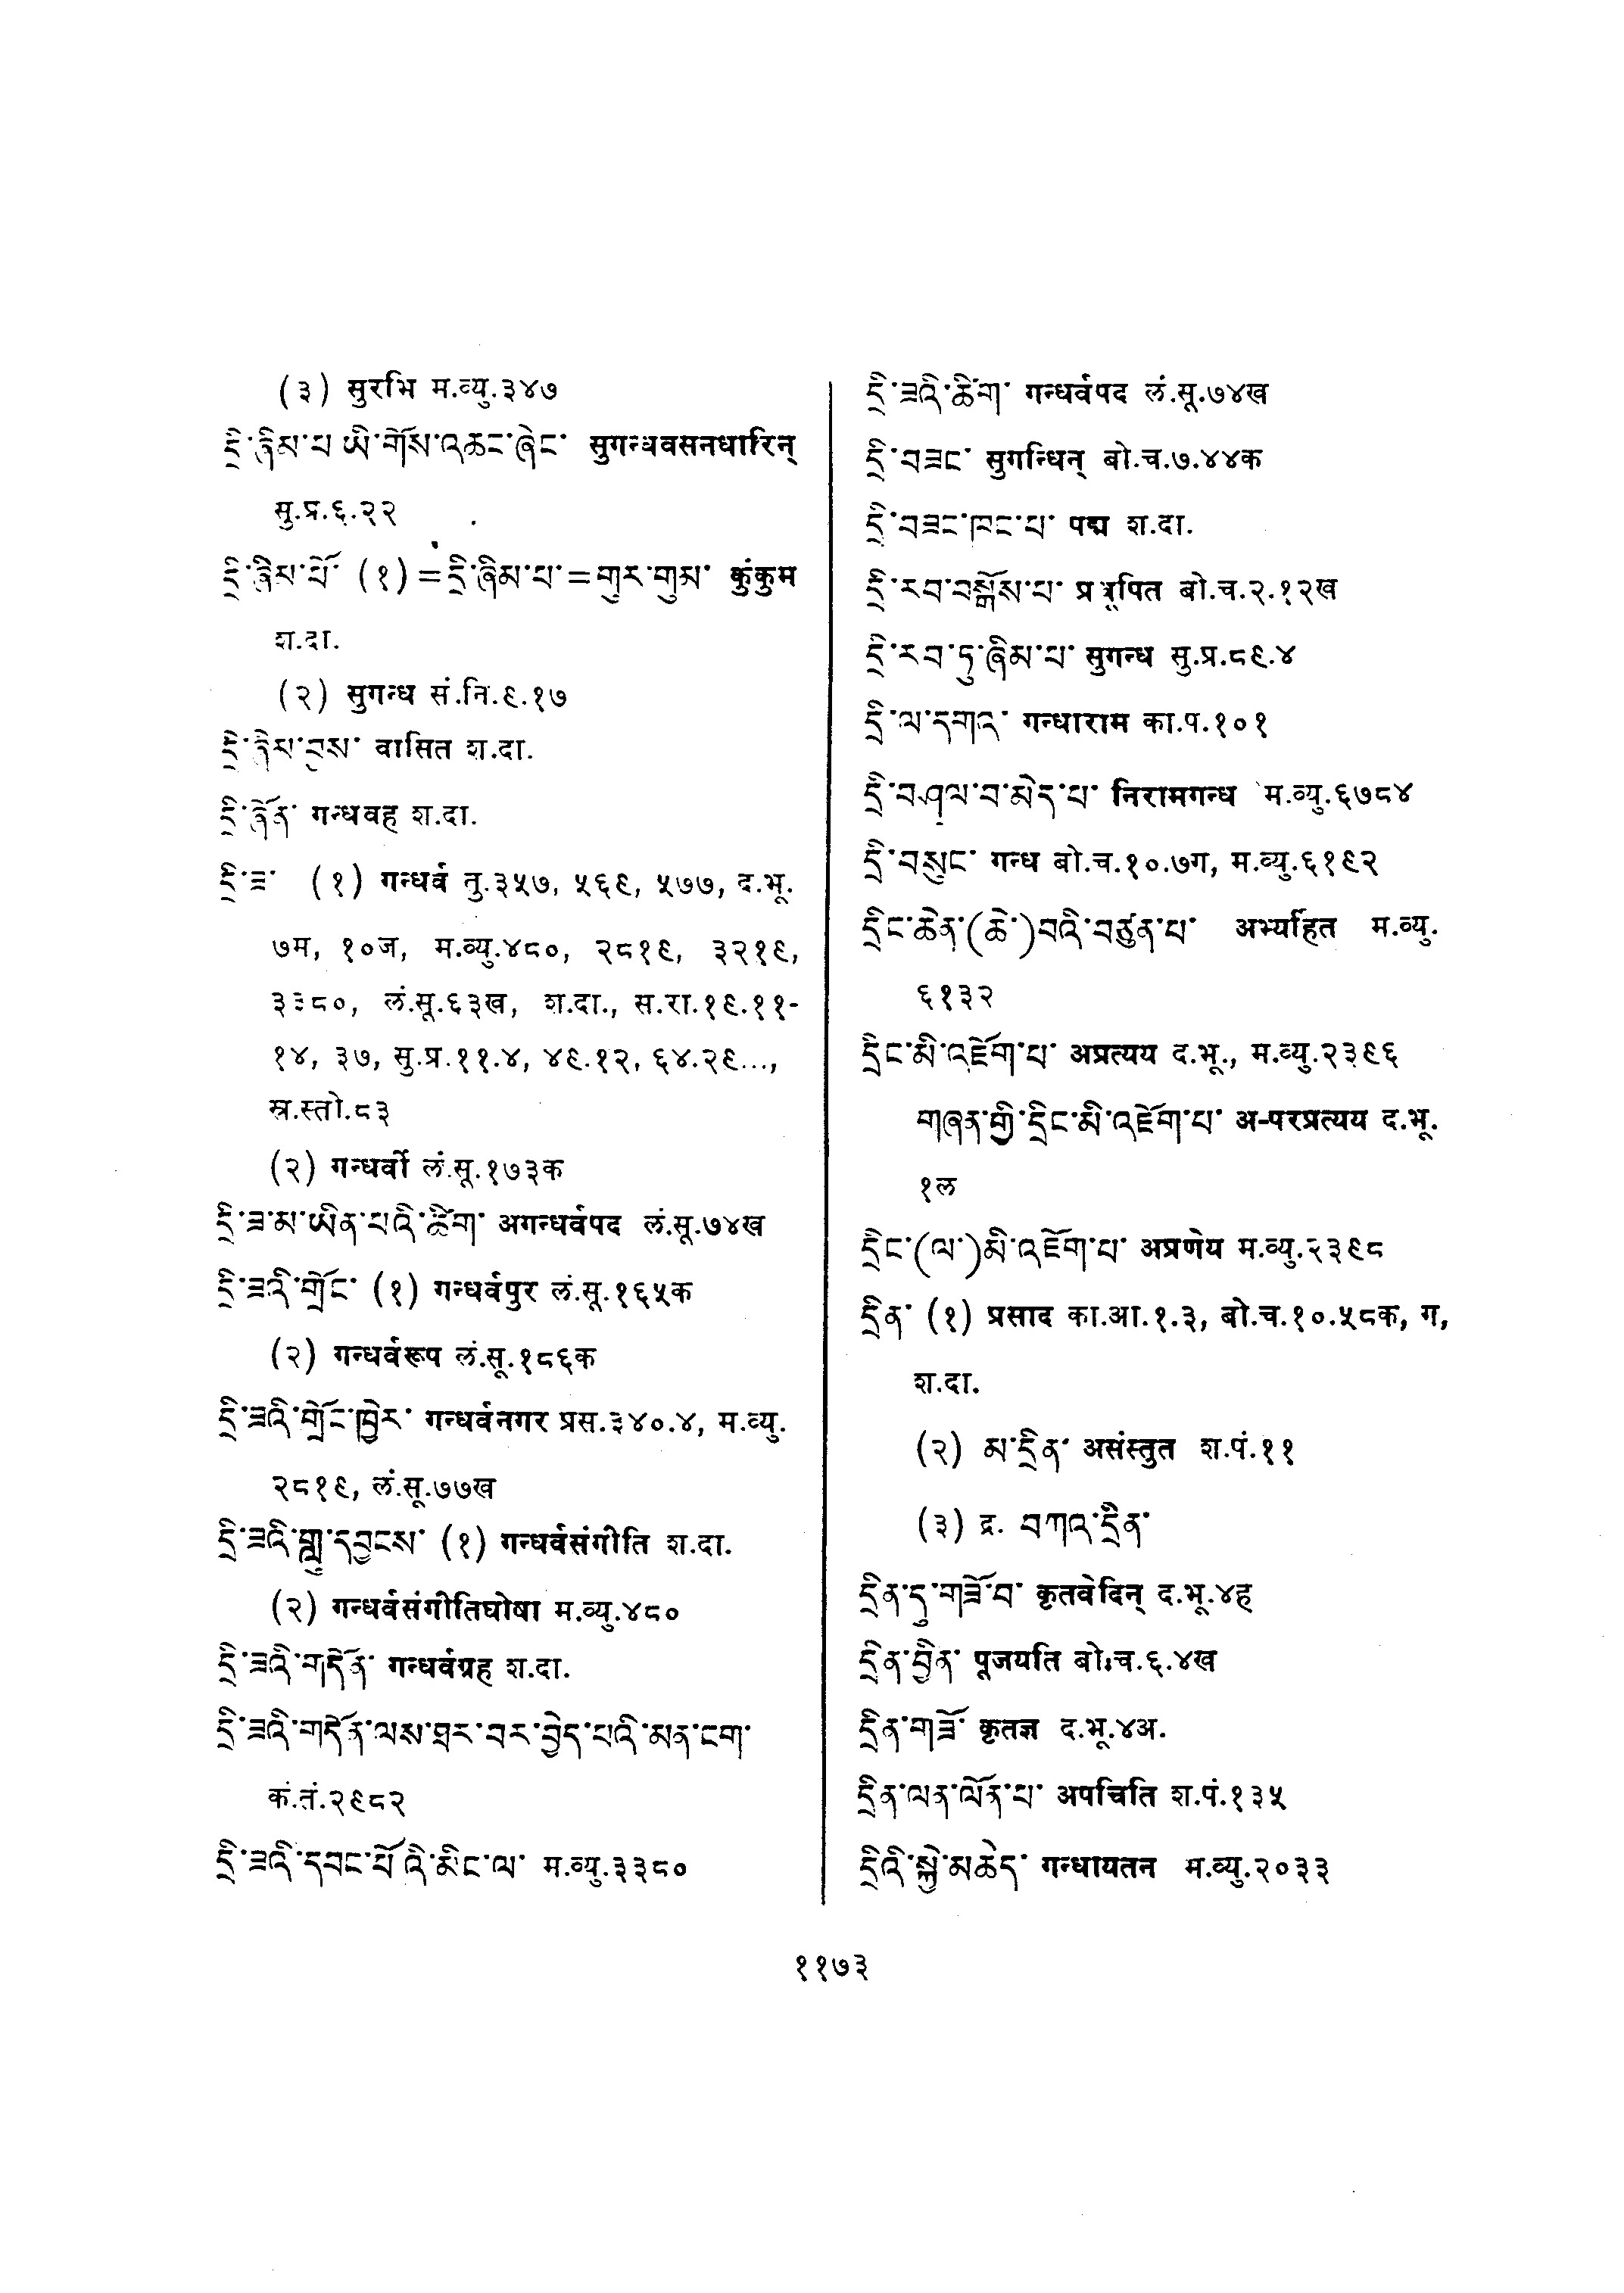 (३) सुरभि म.व्यु.३४७
དྲི་ཉིམ་པ ཡི་གོས་འཆང་ཞེང་ सुगन्धवसनधारिन्
सु.प्र.६.२२
དྲི་ཉིམ་པོ་ (१) = དྲི་ཞིམ་པ་ = གུར་གུམ་ कुंकुम
श.दा.
(२) सुगन्ध सं.नि.६.१७
དྲི་ཉིམ་བྱས་ वासित श.दा.
དྲི་ཉོན་ गन्धवह श.दा.
དྲི་ཟ་ (१) गन्धर्व तु.३५७, ५६९, ५७७, द.भू.
७म, १०ज, म.व्यु.४८०, २८१९, ३२१९,
३३८०, लं.सू.६३ख, श.दा., स.रा.१९.११-
१४, ३७, सु.प्र.११.४, ४९.१२, ६४.२९...,
स्र.स्तो.८३
(२) गन्धर्वो लं.सू.१७३क
དྲི་ཟ་མ་ཡིན་པའི་ཚིག་ अगन्धर्वपद लं.सू.७४ख
དྲི་ཟའི་གྲོང་ (१) गन्धर्वपुर लं.सू.१६५क
(२) गन्धर्वरूप लं.सू.१८६क
དྲི་ཟའི་གྲོང་ཁྱེར་ गन्धर्वनगर प्रस.३४०.४, म.व्यु.
२८१९, लं.सू.७७ख
དྲི་ཟའི་གླུ་དབྱངས་ (१) गन्धर्वसंगीति श.दा.
(२) गन्धर्वसंगीतिघोषा म.व्यु.४८०
དྲི་ཟའི་གདོན་ गन्धर्वग्रह श.दा.
དྲི་ཟའི་གདོན་ལས་ཐར་བར་བྱེད་པའི་མན་ངག་
कं.तं.२९८२
དྲི་ཟའི་དབང་པོ འི་མིང་ལ་ म.व्यु.३३८०
དྲི་ཟའི་ཚིག་ गन्धर्वपद लं.सू.७४ख
དྲི་བཟང་ सुगन्धिन् बो.च.७.४४क
དྲི་བཟང་ཁང་པ་ पद्म श.दा.
དྲི་རབ་བསྒོས་པ་ प्रधूपित बो.च.२.१२ख
དྲི་རབ་ཏུ་ཞིམ་པ་ सुगन्ध सु.प्र.८९.४
དྲི་ལ་དགའ་ गन्धाराम का.प.१०१
དྲི་བཤལ་བ་མེད་པ་ निरामगन्ध म.व्यु.६७८४
དྲི་བསུང་ गन्ध बो.च.१०.७ग, म.व्यु.६१९२
དྲིང་ཆེན་(ཆེ་)བའི་བཙུན་པ་ अभ्यर्हित म.व्यु.
६१३२
དྲིང་མི་འཇོག་པ་ अप्रत्यय द.भू., म.व्यु.२३९६
གཞན་གྱི་དྲིང་མི་འཇོག་པ་ अ-परप्रत्यय द.भू.
१ल
དྲིང་(ལ་)མི་འཇོག་པ་ अप्रणेय म.व्यु.२३९८
དྲིན་ (१) प्रसाद का.आ.१.३, बो.च.१०.५८क, ग,
श.दा.
(२) མ་དྲིན་ असंस्तुत श.पं.११
(३) द्र. བཀའ་དྲིན་
དྲིན་དུ་གཟོ་བ་ कृतवेदिन् द.भू.४ह
དྲིན་བྱིན་ पूजयति बो.च.६.४ख
དྲིན་གཟོ་ कृतज्ञ द.भू.४अ.
དྲིན་ལན་ལོན་པ་ अपचिति श.पं.१३५
དྲིའི་སྐྱེ་མཆེད་ गन्धायतन म.व्यु.२०३३
११७३